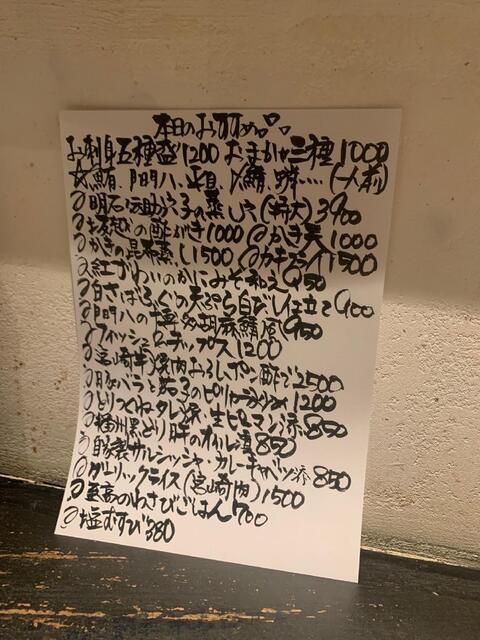 本日のおすすめ品。
お刺身五種盛1200 おまかせ三種1000
鮪、門門八、〆鯖、(一人前)
明石 穴子の蒸し穴(特大)3900
坂越の酢がき1000 かき天1000
かきの昆布蒸し1500 カキフライ1500
紅ずわいのかにみそ和え950
白さばふぐの天ぷら白だし仕立て900
門門八の博多胡麻鯖風950
フィッシュ&チップス1200
宮崎牛 焼肉おろしポン酢で2500
豚バラと茄子のピリ辛 1200
とりつくねタレ 生ピーマン添850
播州黒どり肝のオイル漬850
自家製サルシッシャ・カレーキャベツ添850
ガーリックライス(宮崎肉)1500
至高のわさびごはん700
塩むすび380